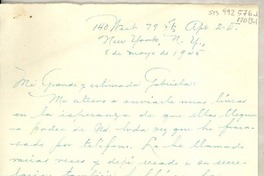 140 West 79 St. Apt 2.E.
New York, N. Y,
8 de mayo de 1945
Mi Grande y estimada Gabriela:
Me atrevo a enviarle unas líneas
en la esperanza de que ellas lleguen
a poder de Ud. toda vez que he fraca-
sado por teléfono. La he llamado
varias veces y dejé recado a su secre-